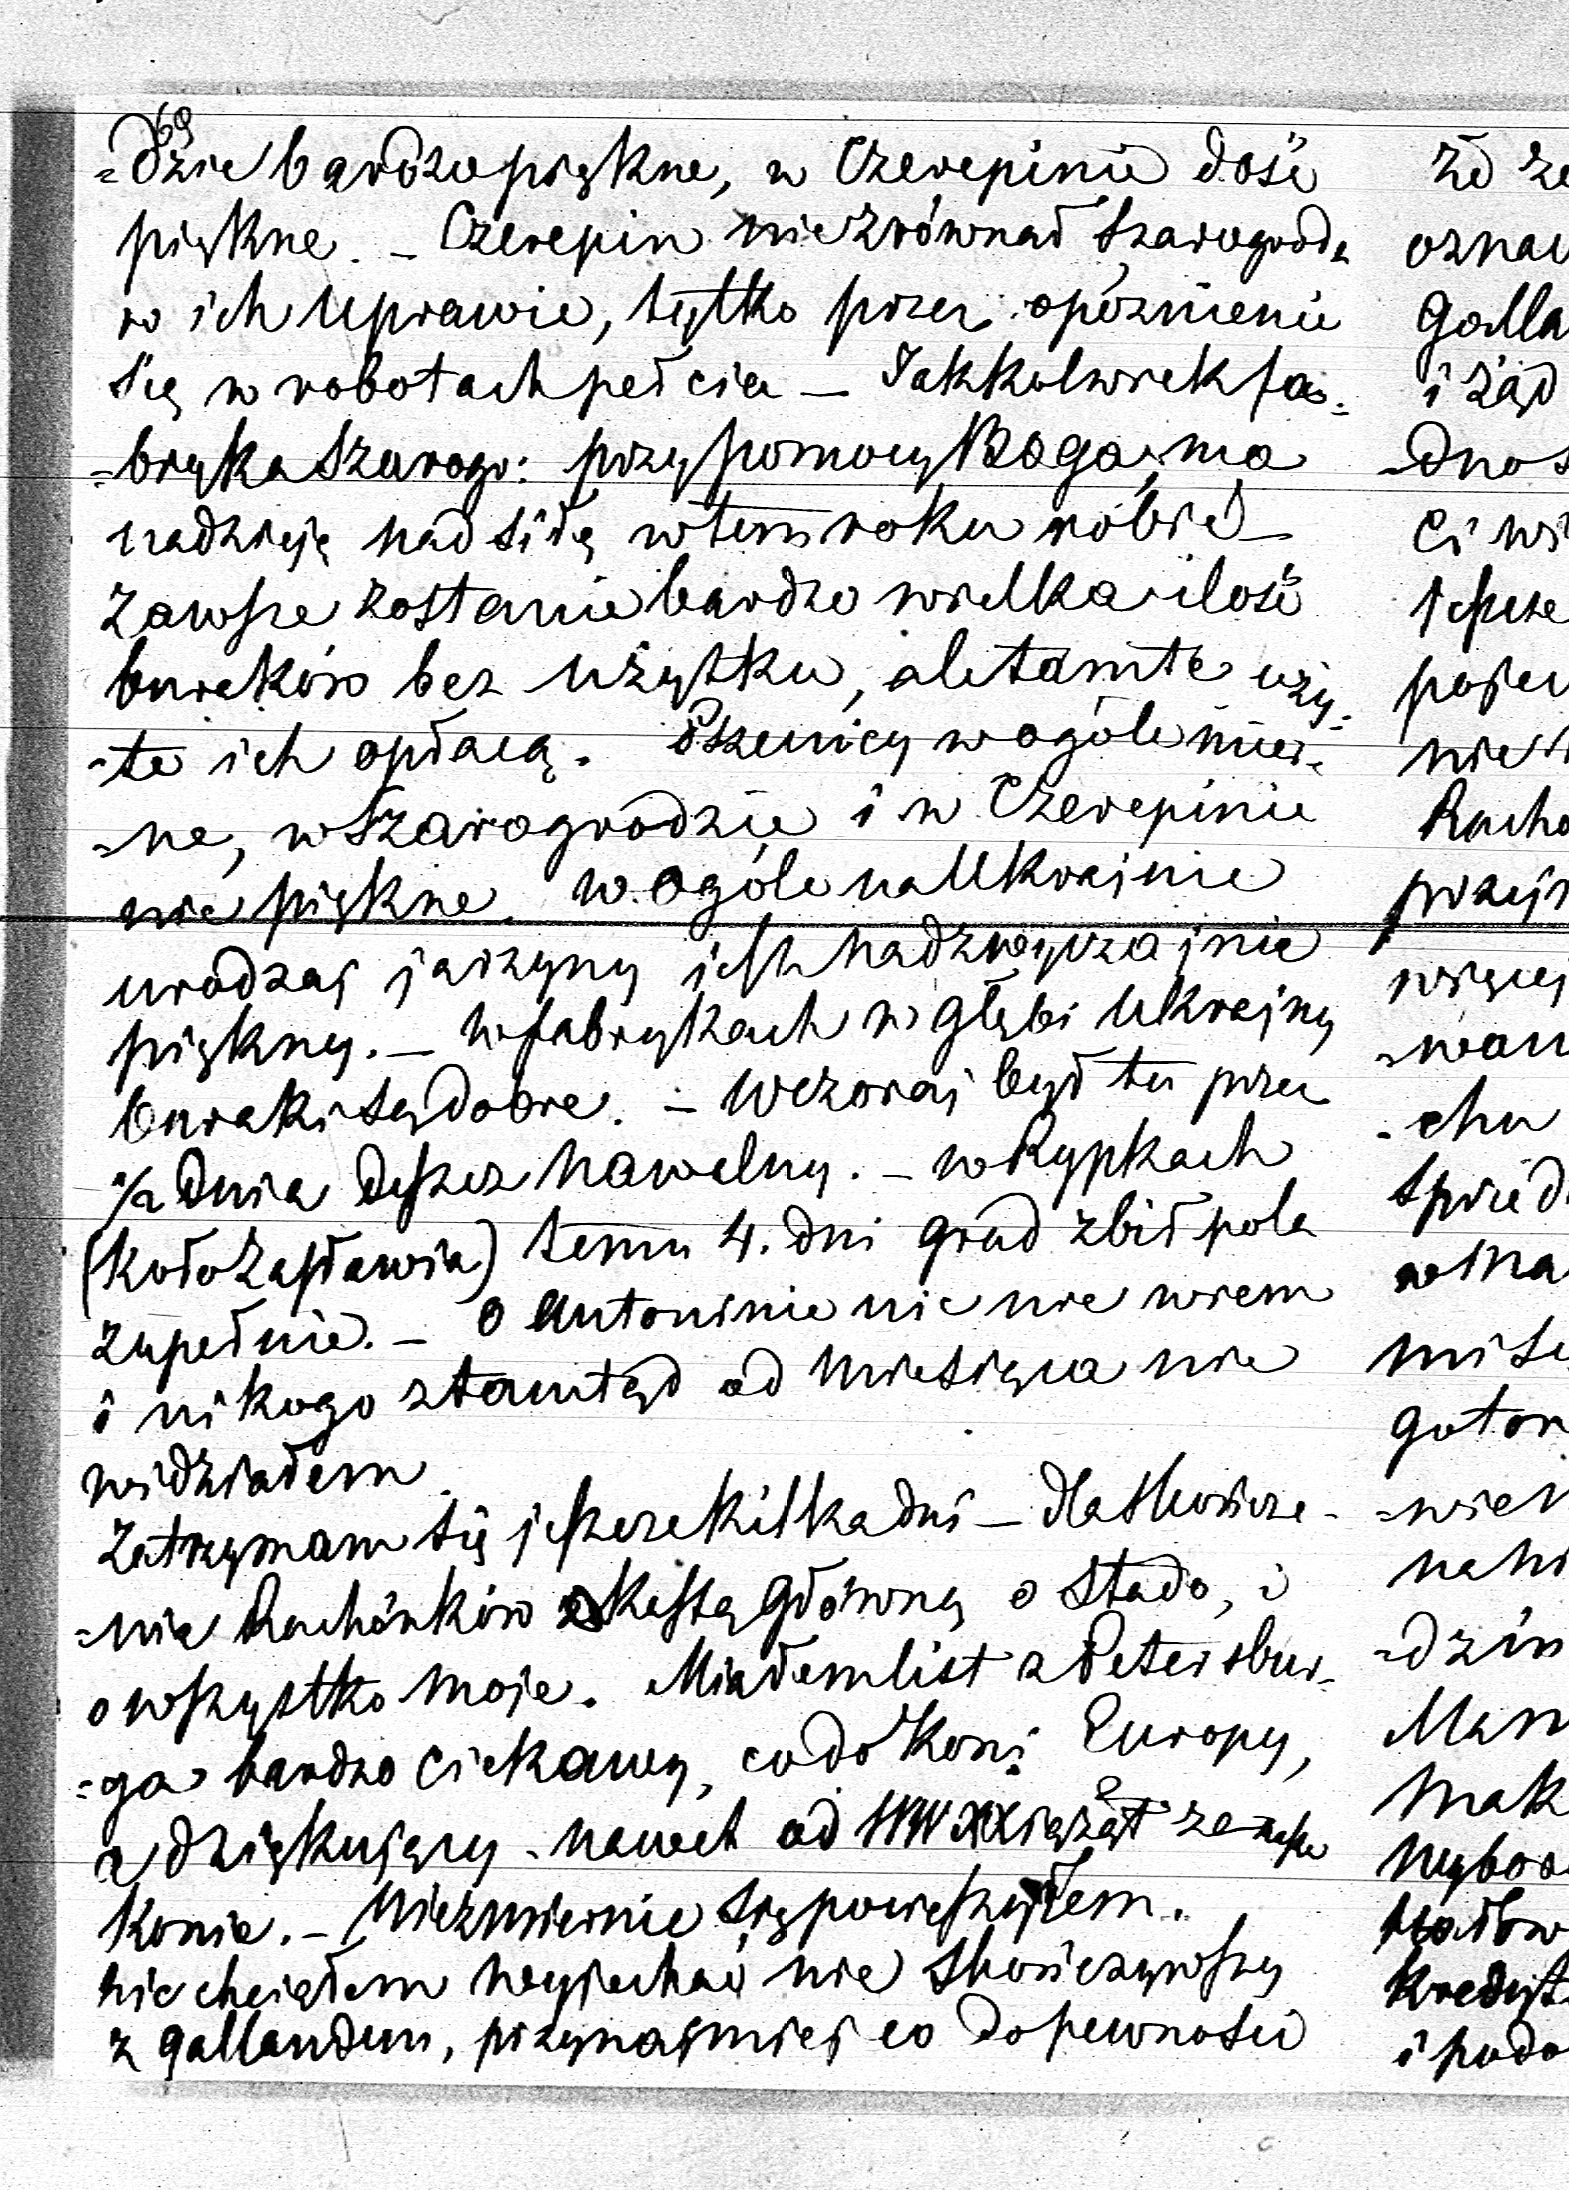 69
=dzie bardzo piękne, w Czerepinie dość
piękne. - Czerepin nie zrównał Szarogrod.
w ich uprawie, tylko przez opóznienie
się w robotach peł cia - Jakkolwiek fa=
=bryka Szarogr: przy pomocy Boga, ma
nadzieję nad siłę w tem roku robić -
zawsze zostanie bardzo wielka ilość
buraków bez użytku, ale tamte uży=
=te ich opłacą. Pszenicy w ogóle mier=
=ne, w Szarogrodzie i w Czerepinie
nie piękne. W ogóle na Ukrajnie
urodzaj jarzyny jest nadzwyczajnie
piękny. - W fabrykach w głębi Ukrajny
buraki są dobre. - Wczoraj był tu przez
1/2 dnia deszcz nawalny. - w Rypkach
(koło Zasławia) temu 4. dni grad zbił pola
zupełnie. - O Antoninie nic nie wiem
i nikogo ztamtąd od miesiąca nie
widziałem.
Zatrzymam się jeszcze kilka dni - dla skończe-
=nia Rachónków o kassę główną o stado, i
o wszystko moje. Miałem list z Petersbur=
=ga bardzo ciekawy, co do koni Europy,
a dziękujący - nawet od WW XXiążąt za nasze
konie. - Niezmiernie się powieszyłem.
nie chciałem wyjechać nie skończywszy
z Gallandem, przynajmniej co do pewności
że że
oznau
Galla
i żąd
=dnoś
Ci wi
jeszcze
pojeu
nie
Racho
przejr
więcej
=wan
=chu
sprzed
w ma
mi są
gotow
=wień
na ni
=dzin
Mam
mak
wybor
kredyt
i podo